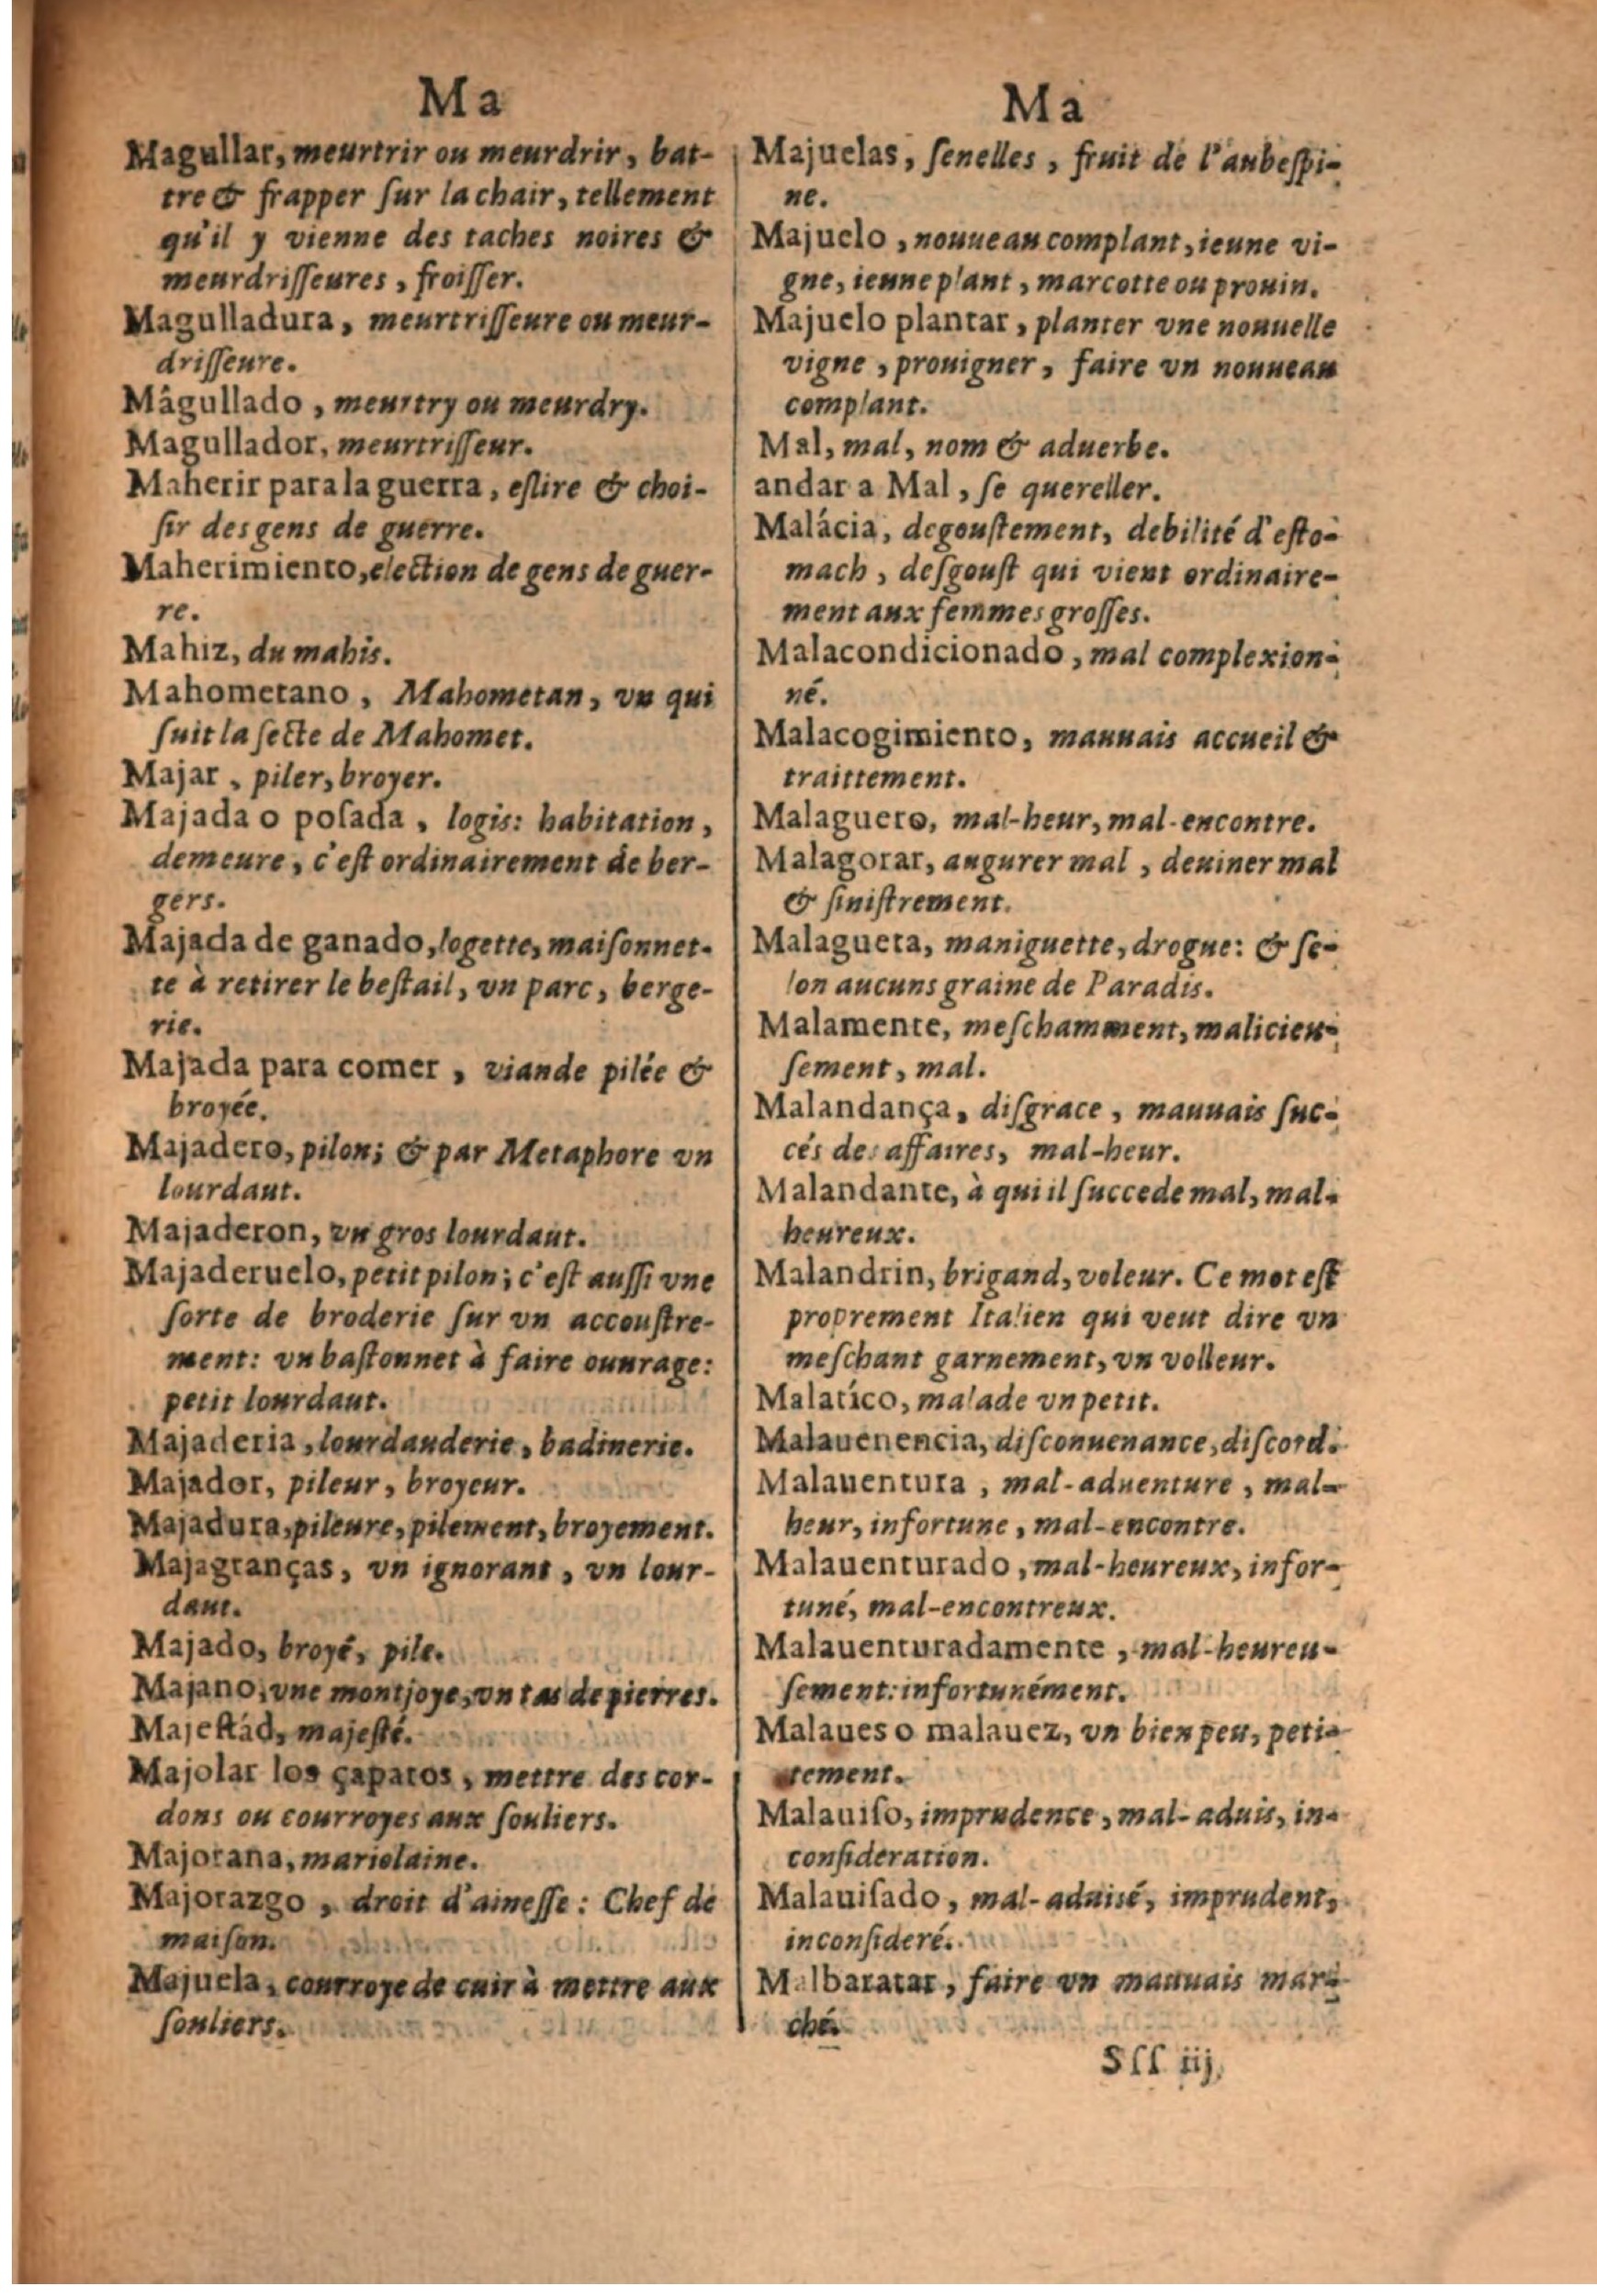 Ma
Magullar, meurtrir ou meurdrir, bat-
tre & frapper ſur la chair, tellement
qu'il y vienne des taches noires &
meurdriſſeures, froiſſer.
Magulladura, meurtriſſeure ou meur-
driſſeure.
Mâgullado, meurtry ou meurdry.
Magullador, meurtriſſeur.
Maherir para la guerra, eſlire & choi-
ſir des gens de guerre.
Maherimiento, election de gens de guer-
re.
Mahiz, du mahis.
Mahometano, Mahometan, vn qui
ſuit la ſecte de Mahomet.
Majar, piler, broyer.
Majada o poſada, logis: habitation,
demeure, c'eſt ordinairement de ber-
gers.
Majada de ganado, logette, maiſonnet-
te à retirer le beſtail, vn parc, berge-
rie.
Majada para comer, viande pilée &
broyée.
Majadero, pilon; & par Metaphore vn
lourdaut.
Majaderon, vn gros lourdaut.
Majaderuelo, petit pilon; c'eſt auſſi vne
ſorte de broderie ſur vn accouſtre-
ment: vn baſtonnet à faire ouurage:
petit lourdaut.
Majaderia, lourdauderie, badinerie.
Majador, pileur, broyeur.
Majadura, pileure, pilement, broyement.
Majagranças, vn ignorant, vn lour-
daut.
Majado, broyé, pile.
Majano, vne montjoye, vn tas de pierres.
Majeſtád, majeſté.
Majolar los çapatos, mettre des cor-
dons ou courroyes aux ſouliers.
Majorana, mariolaine.
Majorazgo, droit d'aineſſe: Chef de
maiſon.
Majuela, courroye de cuir à mettre aux
ſouliers.
Ma
Majuelas, ſenelles, fruit de l'aubeſpi-
ne.
Majuelo, nouueau complant, ieune vi-
gne, ieune plant, marcotte ou prouin.
Majuelo plantar, planter vne nouuelle
vigne, prouigner, faire vn nouueau
complant.
Mal, mal, nom & aduerbe.
andar a Mal, ſe quereller.
Malácia, degouſtement, debilité d'eſto-
mach, deſgouſt qui vient ordinaire-
ment aux femmes groſſes.
Malacondicionado, mal complexion-
né.
Malacogimiento, mauuais accueil &
traittement.
Malaguero, mal-heur, mal-encontre.
Malagorar, augurer mal, deuiner mal
& ſiniſtrement.
Malagueta, maniguette, drogue: & ſe-
lon aucuns graine de Paradis.
Malamente, meſchamment, malicieu-
ſement, mal.
Malandança, diſgrace, mauuais ſuc-
cés des affaires, mal-heur.
Malandante, à qui il ſuccede mal, mal-
heureux.
Malandrin, brigand, voleur. Ce mot eſt
proprement Italien qui veut dire vn
meſchant garnement, vn volleur.
Malatíco, malade vn petit.
Malauenencia, diſconuenance, diſcord.
Malauentura, mal-aduenture, mal-
heur, infortune, mal-encontre.
Malauenturado, mal-heureux, infor-
tuné, mal-encontreux.
Malauenturadamente, mal-heureu-
ſement: infortunément.
Malaues o malauez, vn bien peu, peti-
tement.
Malauiſo, imprudence, mal-aduis, in-
conſideration.
Malauiſado, mal-aduisé, imprudent,
inconſideré.
Malbaratar, faire vn mauuais mar-
ché.
Sſſ iij